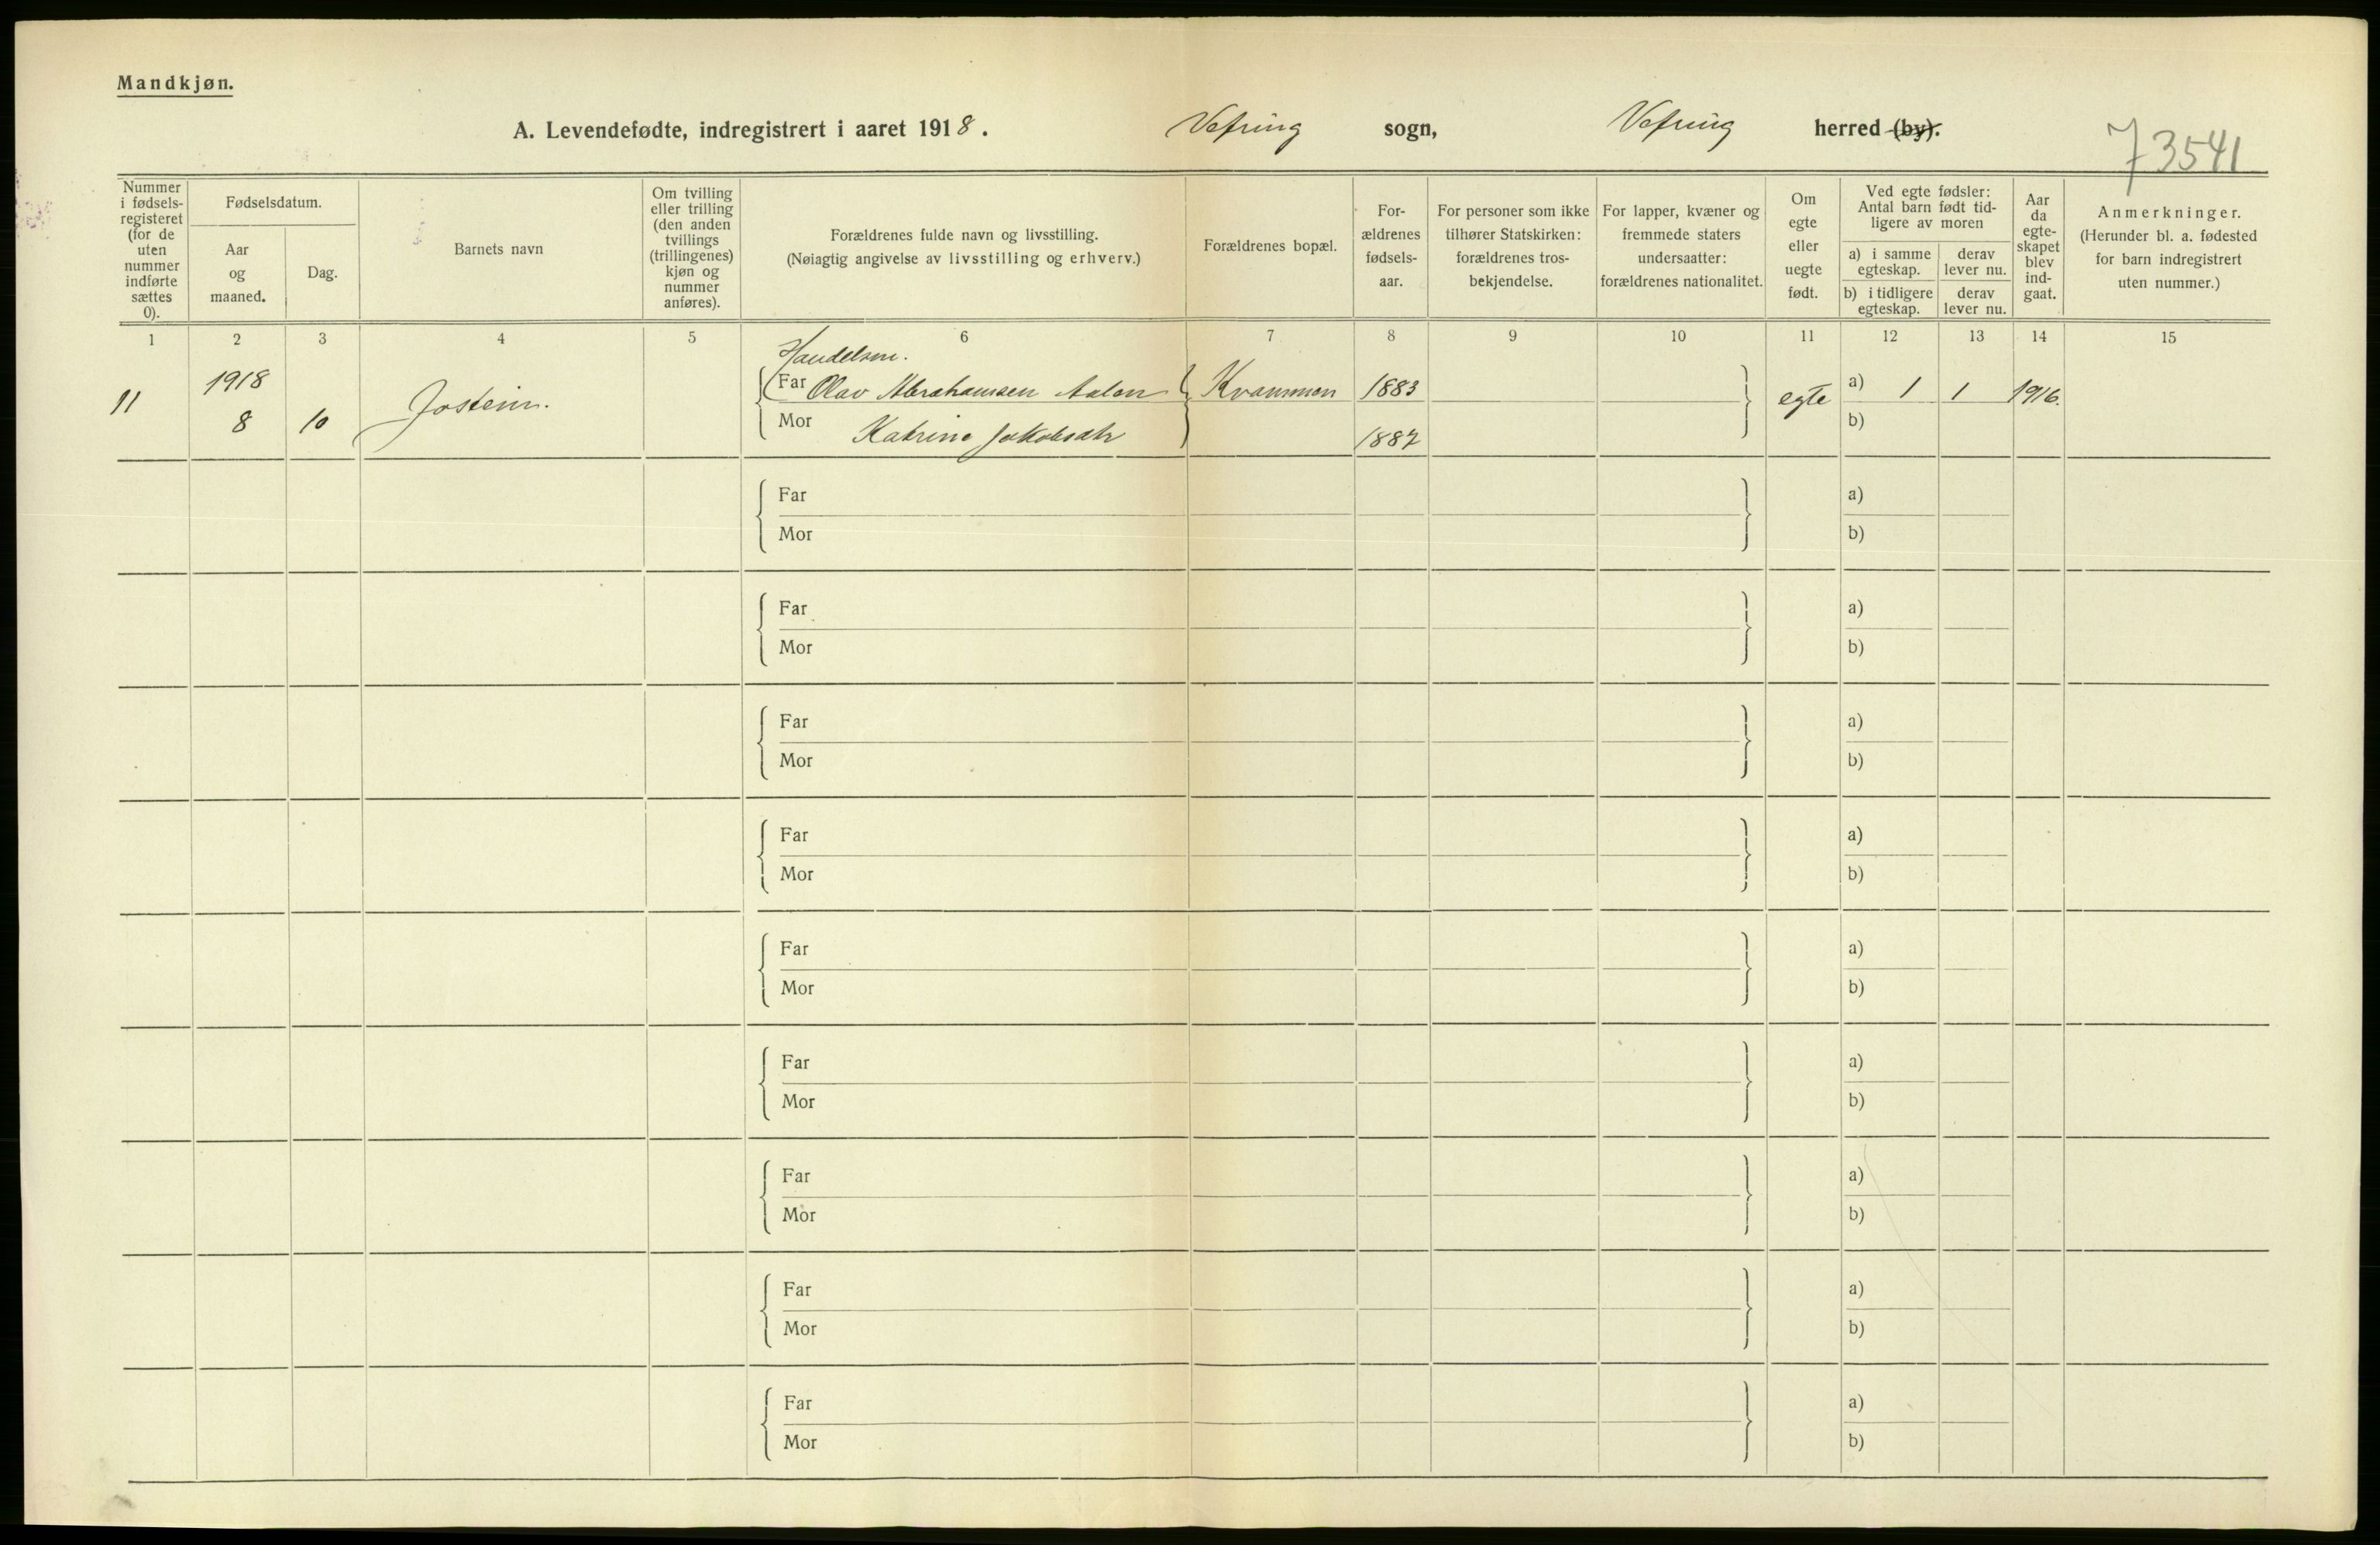 Mandkjøn.
A. Levendefødte, indregistrert i aaret 1918. Vefring sogn, Vefring herred (by).
73541
Nummer i fødsels- registeret (for de uten nummer indførte sættes 0).
Fødselsdatum.
Aar og maaned.
Dag.
Barnets navn
Om tvilling eller trilling (den anden tvillings (trillingenes) kjøn og nummer anføres).
Forældrenes fulde navn og livsstilling.
(Nøiagtig angivelse av livsstilling og erhverv.)
Forældrenes bopæl.
For- ældrenes fødsels- aar.
For personer som ikke tilhører Statskirken: forældrenes tros- bekjendelse.
For lapper, kvæner og fremmede staters undersaatter: forældrenes nationalitet.
Om egte eller uegte født.
Ved egte fødsler: Antal barn født tid- ligere av moren
a) i samme egteskap.
derav lever nu.
b) i tidligere egteskap.
derav lever nu.
Aar da egte- skapet blev ind- gaat.
Anmerkninger.
(Herunder bl. a. fødested for barn indregistrert uten nummer.)
1 2 3 4 5 6 7 8 9 10 11 12 13 14 15
Handelsm.
11 1918 Jostein. Far Olav Abrahamsen Kvammen 1883 egte a) 1 1 1916.
8 10 Mor Katrine Jakobsdtr 1887 b)
Far a)
Mor b)
Far a)
Mor b)
Far a)
Mor b)
Far a)
Mor b)
Far a)
Mor b)
Far a)
Mor b)
Far a)
Mor b)
Far a)
Mor b)
Far a)
Mor b)